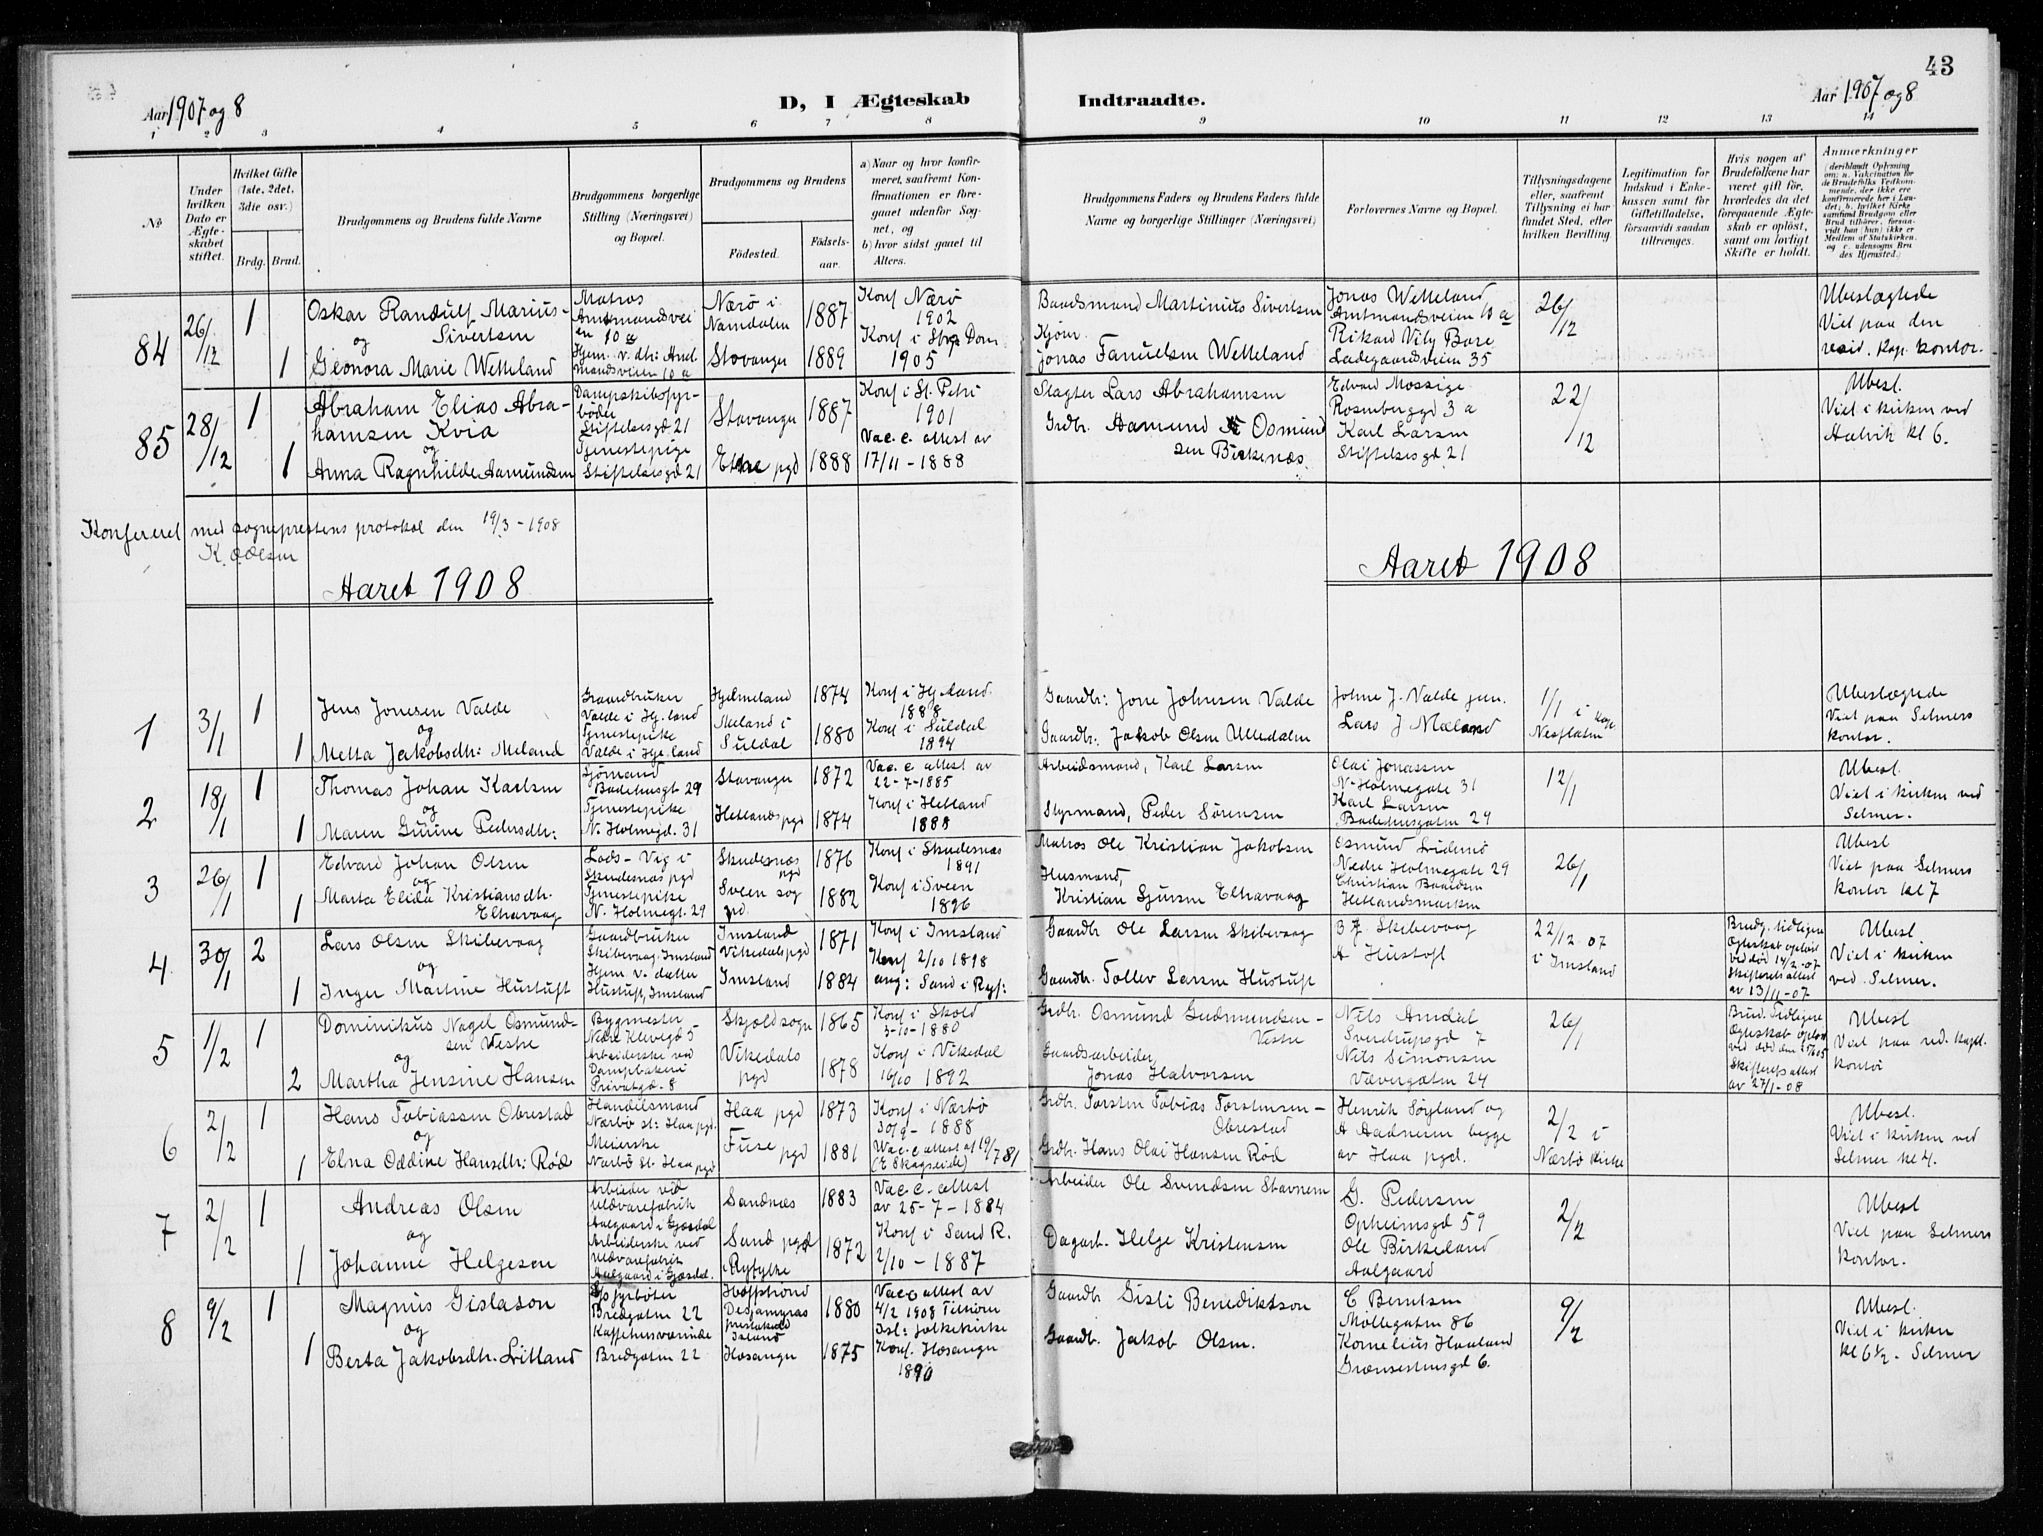 43
Aar 1907 og 8
D, I Ægteskab
Indtraadte.
Aar 1907 og 8
1 2 3 4 5 6 7 8 9 10 11 12 13 14
№
Under hvilken Dato er Ægteskabet stiftet.
Hvilket Gifte (1ste, 2det, 3die osv.)
Brdg. Brud.
Brudgommens og Brudens fulde Navne
Brudgommens borgerlige Stilling (Næringsvei) og Bopæl.
Brudgommens og Brudens
Födested.
Födselsaar.
a) Naar og hvor konfirmeret, saafremt Konfirmationen er foregaaet udenfor Sognet, og
b) hvor sidst gaaet til Alters.
Brudgommens Faders og Brudens Faders fulde Navne og borgerlige Stillinger (Næringsvei)
Forlovernes Navne og Bopæl.
Tillysningsdagene eller, saafremt Tillysning ei har fundet Sted, efter hvilken Bevilling
Legitimation for Indskud i Enkekassen samt for Giftetilladelse, forsaavidt saadan tiltrænges.
Hvis nogen af Brudefolkene har været gift för, hvorledes da det foregaaende Ægteskab er oplöst, samt om lovligt Skifte er holdt.
Anmerkninger
84 26/12 1
Oskar Randulf Marius Sivertsen
og
1 Geonora Marie Wetteland
Matros Amtmandsveien 10 a
Hjem. v. dtr: Amtmandsveien 10 a
Nærø i Namdalen 1887
Stavanger 1889
Konf Nærø 1902
Konf i Stvg Dom. 1905
Baadsmand Martinius Sivertsen
Kjøm.
Jonas Fanuelsen Wetteland
Jonas Wetteland
Amtmandsveien 10 a
Rikard Vily Bore
Ladegaardsveien 35
26/12
Ubeslægtede
Viet paa den
resid. kap. kontor.
85 28/12 1
Abraham Elias Abrahamsen Kvia
og
1 Anna Ragnhilde Aamundsen
Dampskibsfyrbøder
Stiftelsesgd 21
Tjenestepige
Stiftelsesgd 21
Stavanger 1887
Etne pgd 1888
Konf i St. Petri 1901
Vac. c. attest av 17/11 - 1888
Slagter Lars Abrahamsen
Grdbr. Aamund Osmundsen Birkenæs.
Edvard Mossige
Rosenberggd 3 a
Karl Larsen
Stiftelsesgd 21
22/12
Ubesl.
Viet i kirken ved
Halvik kl 6.
Konfereret med sogneprestens protokol den 19/3 - 1908
K. Odlsen
Aaret 1908
Aaret 1908
1 3/1 1
Jens Jonesen Valde
og
1 Metta Jakobsdtr: Meland
Gaardbruker
Valde i Hj.land
Tjenestepike
Valde i Hje.land
Hjelmeland 1874
Meland i Suldal 1880
Konf i Hj.land. 1888
Konf i Suldal 1894
Gaardbr: Jone Johnsen Valde
Gaardbr: Jakob Olsen Ulledalen
Johne J. Valde jun.
Lars J Mæland
1/1 i Nesflaten kap
Ubeslægtede
Viet paa Selmers
kontor.
2 18/1 1
Thomas Johan Karlsen
og
1 Maren Gurine Pedersdtr:
Sjømand
Badehusgt 29
Tjenestepike
N. Holmegd. 31
Stavanger 1872
Hetlands pgd 1874
Vac. c. attest av 22-7-1885
Konf i Hetland 1888
Arbeidsmand, Karl Larsen
Styrmand, Peder Sørensen
Olai Jonassen
N. Holmegate 31
Karl Larsen
Badehusgaten 29
12/1
Ubesl.
Viet i kirken ved
Selmer.
3 26/1 1
Edvard Johan Olsen
og
1 Marta Elida Kristiansdtr. Elhavaag
Lods - Vig i
Skudesnæs pgd
Tjenestepike
N. Holmegt. 29
Skudesnæs pgd 1876
Sveen sog pd. 1882
Konf i Skudesnæs 1891
Konf i Sveen 1896
Matros Ole Kristian Jakobsen
Husmand,
Kristian Sjursen Elhavaag
Osmund
Nedre Holmegate 29
Christian Baardsen
Hetlandsmarken
26/1
Ubesl
Viet paa Selmers
kontor kl 7
4 30/1 2
Lars Olsen Skibevaag
og
1 Inger Martine Hustuft
Gaardbruker
Skibevaag, Imsland
Hjem. v. datter
Hustuft, Imsland
Imsland Vikedals pgd 1871
Imsland 1884
Konf i Imsland
Konf 2/10 1898
ang: Sand i Ryf:
Gaardbr Ole Larsen Skibevaag
Gaardbr. Tollev Larsen Hustuft
B J Skibevaag
A Hustoft
22/12-07
i Imsland
Brudg. tidligere
Ægteskab opløst
ved død 14/2-07
Skifteretsattest
av 13/11-07
Ubesl
Viet i kirken
ved. Selmer.
5 1/2 1
Dominikus Nagel Osmundsen Vestre
og
2 Martha Jensine Hansen
Bygmester
Nedre Klevegd 5
Arbeiderske ved
Dampbakeri
Privatgd. 8
Skjold sogn 1865
Vikedals pgd 1878
Konf i Skold
3-10-1880
Konf i Vikedal
16/10 1892
Grdbr. Osmund Gudmundsen - Vestre
Gaardsarbeider,
Jonas Halvorsen
Nils Amdal
Sverdrupsgd 7
Nils Simonsen
Vævergaten 24
26/1
Brud. Tidligere
Ægteskab opløst
ved død den
Skifteretsattest
av 27/1-08
Ubesl
Viet paa red. kapel.
kontor
6 2/2 1
Hans Tobiassen Obrestad
og
1 Elna Oddine Hansdtr: Rød
Handelsmand
Nærbø st: Haa pgd.
Meierske
Nærbø St. Haa pgd
Haa pgd 1873
Fuse pgd 1881
Konf i Nærbø
30/9 - 1888
Vac. c attest af 19/7 81
(E Skagseide)
Grdbr. Torsten Tobias Torstensen - Obrestad
Grdbr. Hans Olai Hansen Rød
Henrik Søyland og
A Aadneim begge
av Haa pgd.
2/2 i
Nærbø kirke
Ubesl.
Viet i kirken ved
Selmer kl 4.
7 2/2 1
Andreas Olsen
og
1 Johanne Helgesen
Arbeider ved
uldvarefabrik
Aalgaard i Gjesdal
Arbeiderske ved
uldvarefabrik
Aalgaard i Gjesdal.
Sandnæs 1883
Sand pgd Ryfylke 1872
Vac. c. attest
av 25-7-1884
Konf i Sand R.
2/10 - 1887
Arbeider Ole Svendsen Stavnem
Dagarb. Helge Kristensen
G. Pedersen
Opheimsgd 59
Ole Birkeland
Aalgaard
2/2
Ubesl
Viet paa Selmers
kontor.
8 9/2 1
Magnus Gislason
og
1 Berta Jakobsdtr. Litland
fyrbøter
Bredgaten 22
Kaffehusværtinde
Bredgaten 22
Island 1880
Hosanger 1875
Vac c attest av
4/2 1908 Tilhører
Isl: folkekirke
Konf. Hosanger
1890
Gaardbr Gisli Benediktson
Gaardbr. Jakob Olsen.
C Berntsen
Møllegaten 86
Kornelius Haaland
Grænsehusgd 6.
9/2
Ubesl.
Viet i kirken
kl 6½ - Selmer